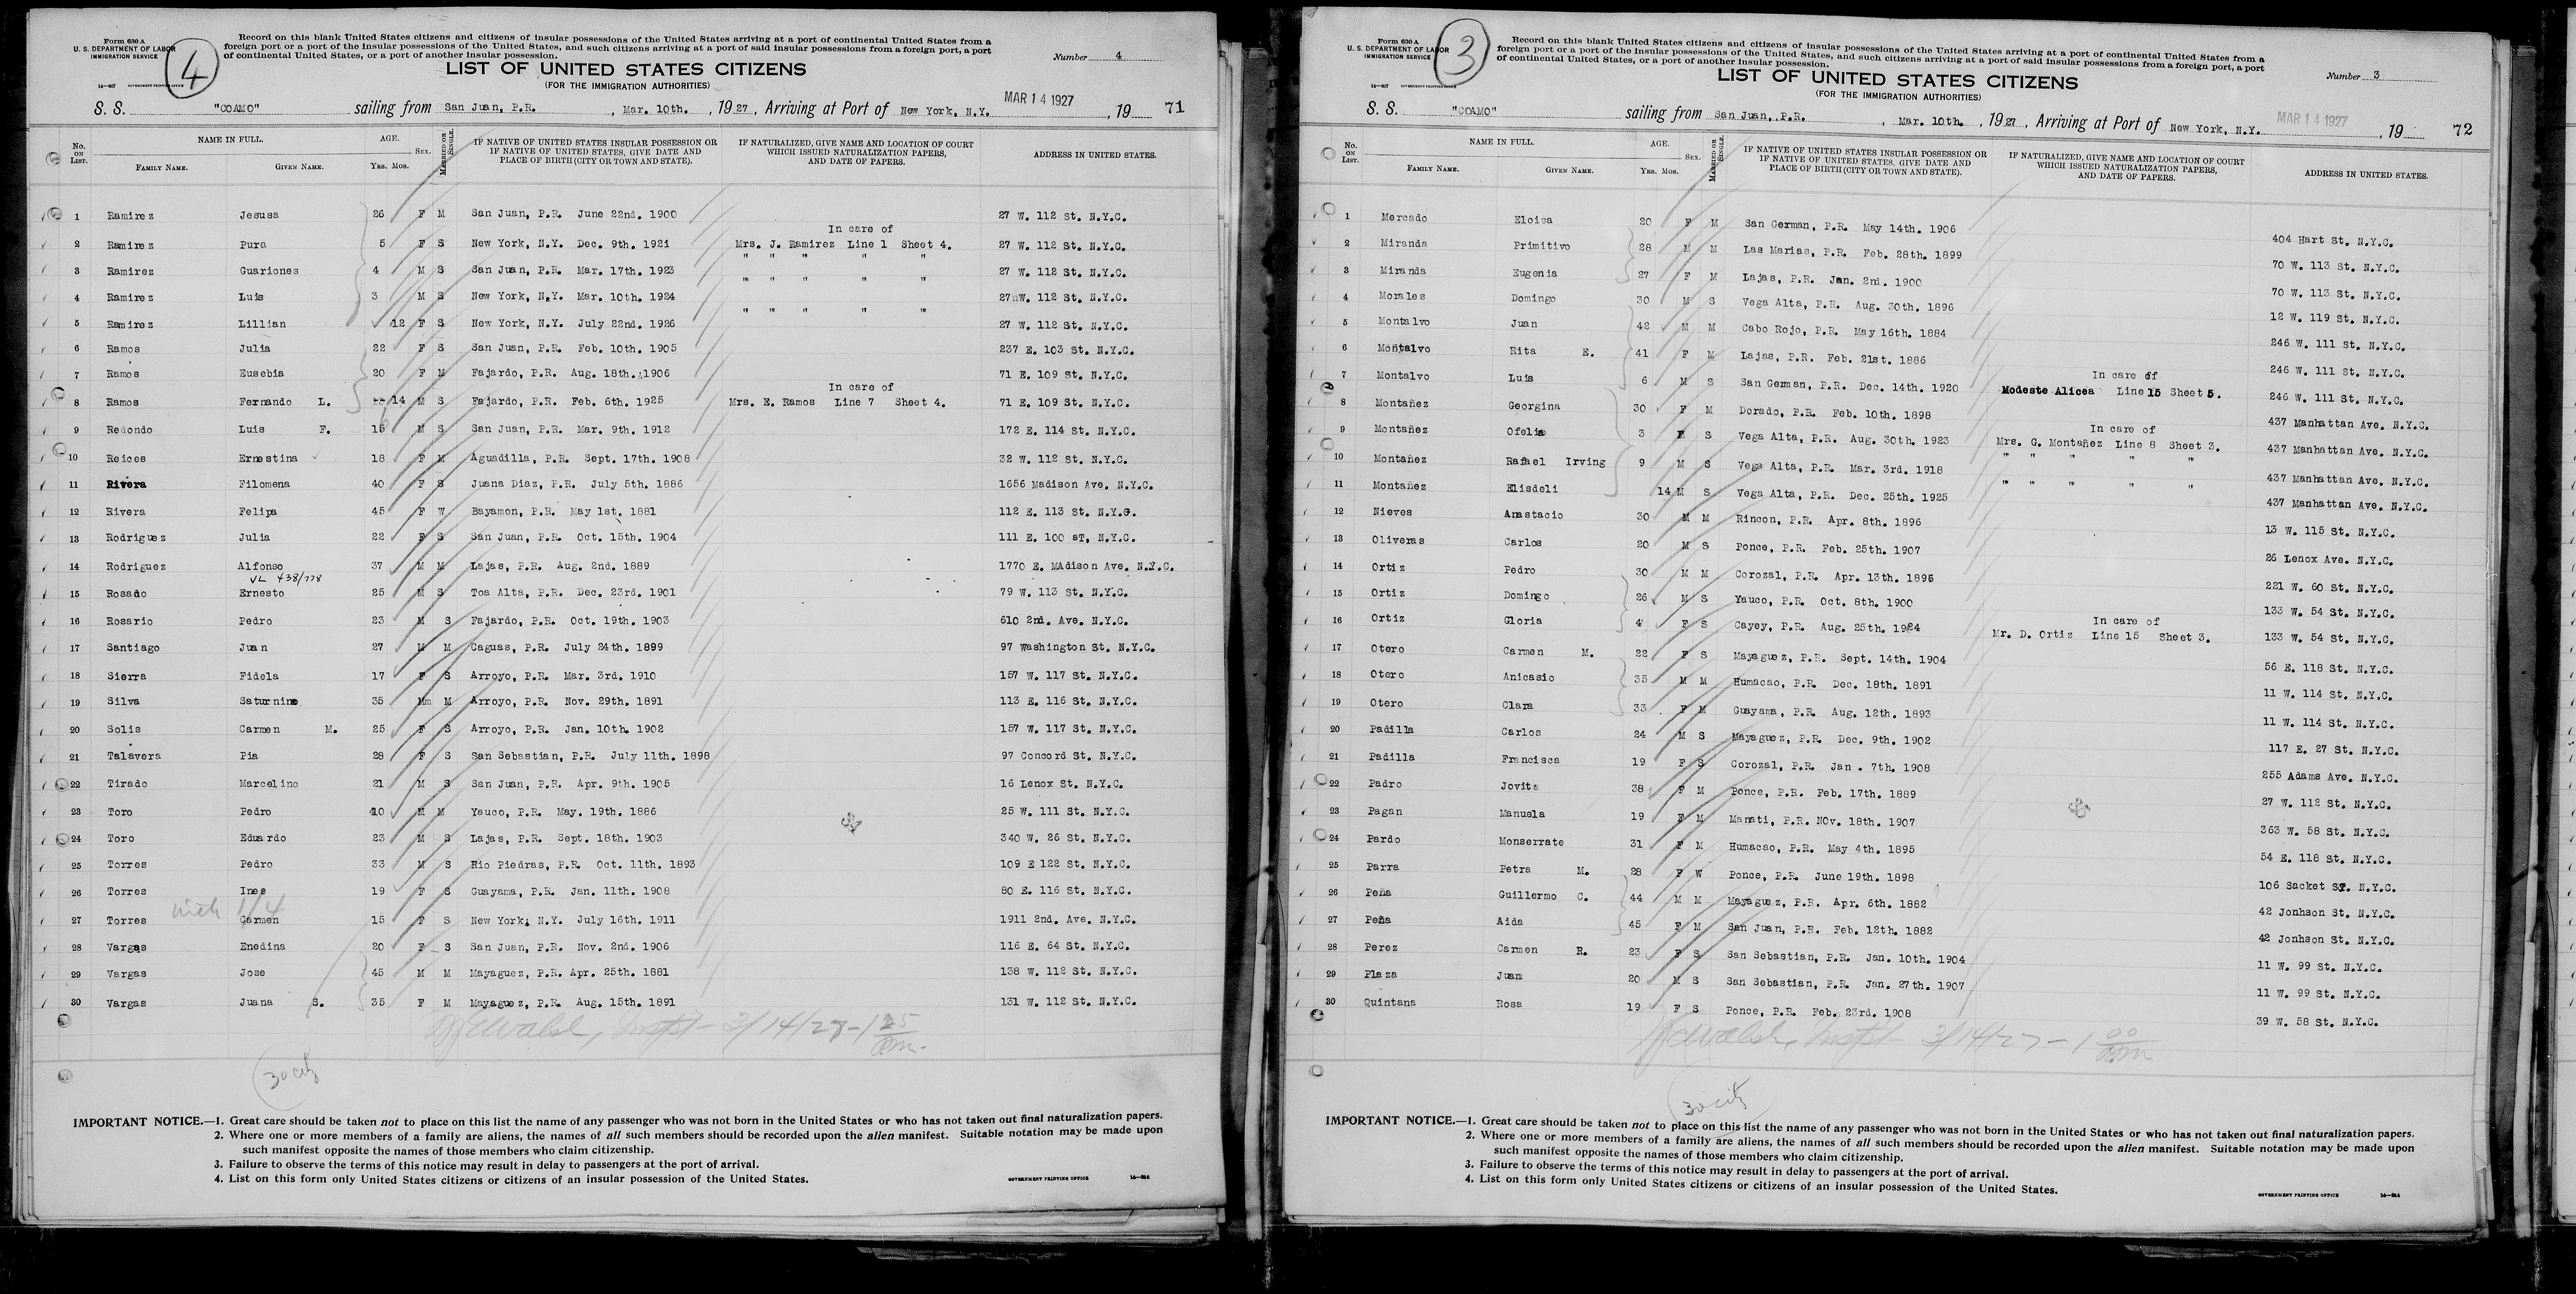 Form 630 A
U. S. DEPARTMENT OF LABOR
IMMIGRATION SERVICE
4
Record on this blank United States citizens and citizens of insular possessions of the United States arriving at a port of continental United States from a
foreign port or a port of the insular possessions of the United States, and such citizens arriving at a port of said insular possessions from a foreign port, a port
of continental United States, or a port of another insular possession.
Number 4
LIST OF UNITED STATES CITIZENS
(FOR THE IMMIGRATION AUTHORITIES)
S. S. "COAMO" sailing from San Juan, P.R. , Mar. 10th. , 1927, Arriving at Port of New York, N.Y. MAR 14 1927 , 19 71
No. ON LIST. NAME IN FULL. FAMILY NAME. GIVEN NAME. AGE. YRS. MOS. SEX. MARRIED OR SINGLE. IF NATIVE OF UNITED STATES INSULAR POSSESSION OR IF NATIVE OF UNITED STATES, GIVE DATE AND PLACE OF BIRTH (CITY OR TOWN AND STATE). IF NATURALIZED, GIVE NAME AND LOCATION OF COURT WHICH ISSUED NATURALIZATION PAPERS, AND DATE OF PAPERS. ADDRESS IN UNITED STATES.
1 Ramirez Jesusa 26 F M San Juan, P.R. June 22nd. 1900 27 W. 112 St. N.Y.C.
2 Ramirez Pura 5 F S New York, N.Y. Dec. 9th. 1921 In care of Mrs. J. Ramirez Line 1 Sheet 4. 27 W. 112 St. N.Y.C.
3 Ramirez Guariones 4 M S San Juan, P.R. Mar. 17th. 1923 " " " " " 27 W. 112 St. N.Y.C.
4 Ramirez Luis 3 M S New York, N.Y. Mar. 10th. 1924 " " " " " 27 W. 112 St. N.Y.C.
5 Ramirez Lillian 12 F S New York, N.Y. July 22nd. 1926 " " " " " 27 W. 112 St. N.Y.C.
6 Ramos Julia 22 F S San Juan, P.R. Feb. 10th. 1905 237 E. 103 St. N.Y.C.
7 Ramos Eusebia 20 F M Fajardo, P.R. Aug. 18th. 1906 71 E. 109 St. N.Y.C.
8 Ramos Fernando L. 14 M S Fajardo, P.R. Feb. 6th. 1925 In care of Mrs. E. Ramos Line 7 Sheet 4. 71 E. 109 St. N.Y.C.
9 Redondo Luis F. 15 M S San Juan, P.R. Mar. 9th. 1912 172 E. 114 St. N.Y.C.
10 Reices Ernestina 18 F M Aguadilla, P.R. Sept. 17th. 1908 32 W. 112 St. N.Y.C.
11 Rivera Filomena 40 F S Juana Diaz, P.R. July 5th. 1886 1656 Madison Ave. N.Y.C.
12 Rivera Felipa 45 F W Bayamon, P.R. May 1st. 1881 112 E. 113 St. N.Y.C.
13 Rodriguez Julia 22 F S San Juan, P.R. Oct. 15th. 1904 111 E. 100 sT, N.Y.C.
14 Rodriguez Alfonso 37 M M Lajas, P.R. Aug. 2nd. 1889 1770 E. MAdison Ave. N.Y.C.
VL 438/778
15 Rosado Ernesto 25 M S Toa Alta, P.R. Dec. 23rd. 1901 79 W. 113 St. N.Y.C.
16 Rosario Pedro 23 M S Fajardo, P.R. Oct. 19th. 1903 610 2nd. Ave. N.Y.C.
17 Santiago Juan 27 M M Caguas, P.R. July 24th. 1899 97 Washington St. N.Y.C.
18 Sierra Fidela 17 F S Arroyo, P.R. Mar. 3rd. 1910 157 W. 117 St. N.Y.C.
19 Silva Saturnino 35 Mm M Arroyo, P.R. Nov. 29th. 1891 113 E. 116 St. N.Y.C.
20 Solis Carmen M. 25 F S Arroyo, P.R. Jan. 10th. 1902 157 W. 117 St. N.Y.C.
21 Talavera Pia 28 F S San Sebastian, P.R. July 11th. 1898 97 Concord St. N.Y.C.
22 Tirado Marcelino 21 M S San Juan, P.R. Apr. 9th. 1905 16 Lenox St. N.Y.C.
23 Toro Pedro 40 M M Yauco, P.R. May. 19th. 1886 25 W. 111 St. N.Y.C.
24 Toro Eduardo 23 M S Lajas, P.R. Sept. 18th. 1903 340 W. 26 St. N.Y.C.
25 Torres Pedro 33 M S Rio Piedras, P.R. Oct. 11th. 1893 109 E 122 St. N.Y.C.
26 Torres Ines 19 F S Guayama, P.R. Jan. 11th. 1908 80 E. 116 St. N.Y.C.
27 Torres Carmen 15 F S New York, N.Y. July 16th. 1911 1911 2nd. Ave. N.Y.C.
28 Vargas Enedina 20 F S San Juan, P.R. Nov. 2nd. 1906 116 E. 64 St. N.Y.C.
29 Vargas Jose 45 M M Mayaguez, P.R. Apr. 25th. 1881 138 W. 112 St. N.Y.C.
30 Vargas Juana S. 35 F M Mayaguez, P.R. Aug. 15th. 1891 131 W. 112 St. N.Y.C.
3/14/27
IMPORTANT NOTICE.—1. Great care should be taken not to place on this list the name of any passenger who was not born in the United States or who has not taken out final naturalization papers.
2. Where one or more members of a family are aliens, the names of all such members should be recorded upon the alien manifest. Suitable notation may be made upon
such manifest opposite the names of those members who claim citizenship.
3. Failure to observe the terms of this notice may result in delay to passengers at the port of arrival.
4. List on this form only United States citizens or citizens of an insular possession of the United States.
GOVERNMENT PRINTING OFFICE
Form 630 A
U. S. DEPARTMENT OF LABOR
IMMIGRATION SERVICE
3
Record on this blank United States citizens and citizens of insular possessions of the United States arriving at a port of continental United States from a
foreign port or a port of the insular possessions of the United States, and such citizens arriving at a port of said insular possessions from a foreign port, a port
of continental United States, or a port of another insular possession.
Number 3
LIST OF UNITED STATES CITIZENS
(FOR THE IMMIGRATION AUTHORITIES)
S. S. "COAMO" sailing from San Juan, P.R. , Mar. 10th. , 1927, Arriving at Port of New York, N.Y. MAR 14 1927 , 19 72
No. ON LIST. NAME IN FULL. FAMILY NAME. GIVEN NAME. AGE. YRS. MOS. SEX. MARRIED OR SINGLE. IF NATIVE OF UNITED STATES INSULAR POSSESSION OR IF NATIVE OF UNITED STATES, GIVE DATE AND PLACE OF BIRTH (CITY OR TOWN AND STATE). IF NATURALIZED, GIVE NAME AND LOCATION OF COURT WHICH ISSUED NATURALIZATION PAPERS, AND DATE OF PAPERS. ADDRESS IN UNITED STATES.
1 Mercado Eloisa 20 F M San German, P.R. May 14th. 1906 404 Hart St. N.Y.C.
2 Miranda Primitivo 28 M M Las Marias, P.R. Feb. 28th. 1899 70 W. 113 St. N.Y.C.
3 Miranda Eugenia 27 F M Lajas, P.R. Jan. 2nd. 1900 70 W. 113 St. N.Y.C.
4 Morales Domingo 30 M S Vega Alta, P.R. Aug. 30th. 1896 12 W. 119 St. N.Y.C.
5 Montalvo Juan 42 M M Cabo Rojo, P.R. May 16th. 1884 246 W. 111 St. N.Y.C.
6 Montalvo Rita E. 41 F M Lajas, P.R. Feb. 21st. 1886 246 W. 111 St. N.Y.C.
7 Montalvo Luis 6 M S San German, P.R. Dec. 14th. 1920 In care of Modeste Alicea Line 15 Sheet 5. 246 W. 111 St. N.Y.C.
8 Montañez Georgina 30 F M Dorado, P.R. Feb. 10th. 1898 437 Manhattan Ave. N.Y.C.
9 Montañez Ofelia 3 F S Vega Alta, P.R. Aug. 30th. 1923 In care of Mrs. G. Montañez Line 8 Sheet 3. 437 Manhattan Ave. N.Y.C.
10 Montañez Rafael Irving 9 M S Vega Alta, P.R. Mar. 3rd. 1918 " " " " " 437 Manhattan Ave. N.Y.C.
11 Montañez Elisdeli 14 M S Vega Alta, P.R. Dec. 25th. 1925 " " " " " 437 Manhattan Ave. N.Y.C.
12 Nieves Anastacio 30 M M Rincon, P.R. Apr. 8th. 1896 13 W. 115 St. N.Y.C.
13 Oliveras Carlos 20 M S Ponce, P.R. Feb. 25th. 1907 26 Lenox Ave. N.Y.C.
14 Ortiz Pedro 30 M M Corozal, P.R. Apr. 13th. 1896 221 W. 60 St. N.Y.C.
15 Ortiz Domingo 26 M S Yauco, P.R. Oct. 8th. 1900 133 W. 54 St. N.Y.C.
16 Ortiz Gloria 4 F S Cayey, P.R. Aug. 25th. 1924 In care of Mr. D. Ortiz Line 15 Sheet 3. 133 W. 54 St. N.Y.C.
17 Otero Carmen M. 22 F S Mayaguez, P.R. Sept. 14th. 1904 56 E. 118 St. N.Y.C.
18 Otero Anicasio 35 M M Humacao, P.R. Dec. 18th. 1891 11 W. 114 St. N.Y.C.
19 Otero Clara 33 F M Guayama, P.R. Aug. 12th. 1893 11 W. 114 St. N.Y.C.
20 Padilla Carlos 24 M S Mayaguez, P.R. Dec. 9th. 1902 117 E. 27 St. N.Y.C.
21 Padilla Francisca 19 F S Corozal, P.R. Jan . 7th. 1908 255 Adams Ave. N.Y.C.
22 Padro Jovita 38 F M Ponce, P.R. Feb. 17th. 1889 27 W. 112 St. N.Y.C.
23 Pagan Manuela 19 F M Manati, P.R. NOv. 18th. 1907 363 W. 58 St. N.Y.C.
24 Pardo Monserrate 31 F M Humacao, P.R. May 4th. 1895 54 E. 118 St. N.Y.C.
25 Parra Petra M. 28 F W Ponce, P.R. June 19th. 1898 106 Sacket ST. N.Y.C.
26 Peña Guillermo C. 44 M M Mayaguez, P.R. Apr. 6th. 1882 42 Jonhson St. N.Y.C.
27 Peña Aida 45 F M San Juan, P.R. Feb. 12th. 1882 42 Jonhson St. N.Y.C.
28 Perez Carmen R. 23 F S San Sebastian, P.R. Jan. 10th. 1904 11 W. 99 St. N.Y.C.
29 Plaza Juan 20 M S San Sebastian, P.R. Jan. 27th. 1907 11 W. 99 St. N.Y.C.
30 Quintana Rosa 19 F S Ponce, P.R. Feb. 23rd. 1908 39 W. 58 St. N.Y.C.
3/14/27
IMPORTANT NOTICE.—1. Great care should be taken not to place on this list the name of any passenger who was not born in the United States or who has not taken out final naturalization papers.
2. Where one or more members of a family are aliens, the names of all such members should be recorded upon the alien manifest. Suitable notation may be made upon
such manifest opposite the names of those members who claim citizenship.
3. Failure to observe the terms of this notice may result in delay to passengers at the port of arrival.
4. List on this form only United States citizens or citizens of an insular possession of the United States.
GOVERNMENT PRINTING OFFICE